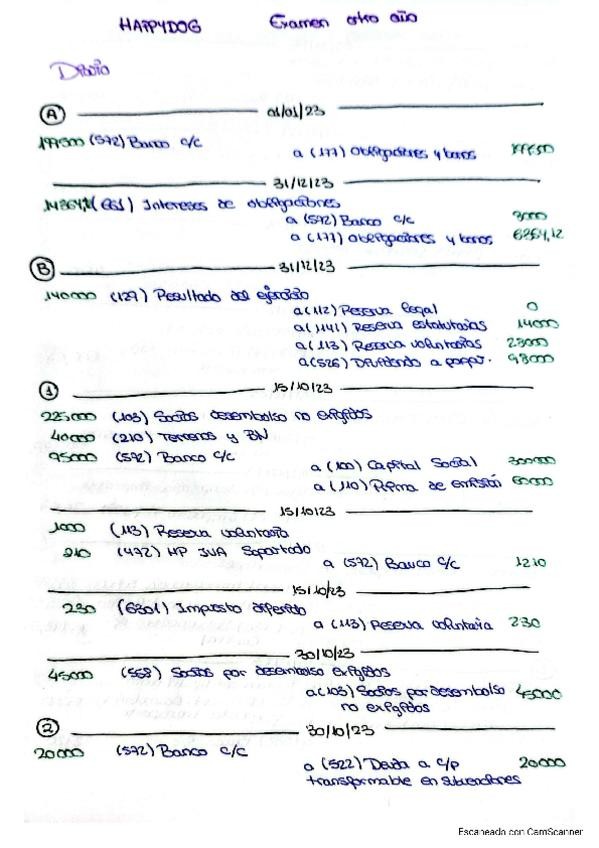 HAPPYDOG Examen otro año
Diario
A 01/01/23
(572) Banco c/c
a (177) Obligaciones y bonos
31/12/23
(661) Intereses de obligaciones
a (572) Banco c/c 3000
a (177) Obligaciones y bonos
B 31/12/23
140000 (129) Resultado del ejercicio
a (112) Reserva legal 0
a (1141) Reserva estatutarias 14000
a (113) Reserva voluntarias
a (526) Dividendo a pagar. 93000
1 15/10/23
225000 (103) Socios desembolso no exigidos
40000 (210) Terrenos y BN
95000 (572) Banco c/c
a (100) Capital Social 300000
a (110) Prima de emisión 60000
15/10/23
1000 (113) Reserva voluntaria
210 (472) HP IVA Soportado
a (572) Banco c/c 1210
15/10/23
230 (6301) Impuesto diferido
a (113) Reserva voluntaria 230
30/10/23
45000 (558) Socios por desembolso exigidos
a (103) Socios por desembolso 45000
no exigidos
2 30/10/23
20000 (572) Banco c/c
a (522) Deuda a c/p 20000
transformable en subvenciones
Escaneado con CamScanner